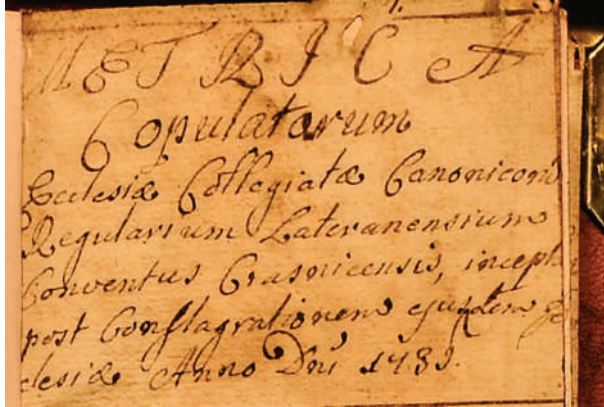 METRICA
Copulatorum
Ecclesiæ Collegiatæ Canonicorū
Regularium Lateranensium
Conventus Crasnicensis, incept
post Conflagrationem ejusdem Ec
clesiæ Anno Dni